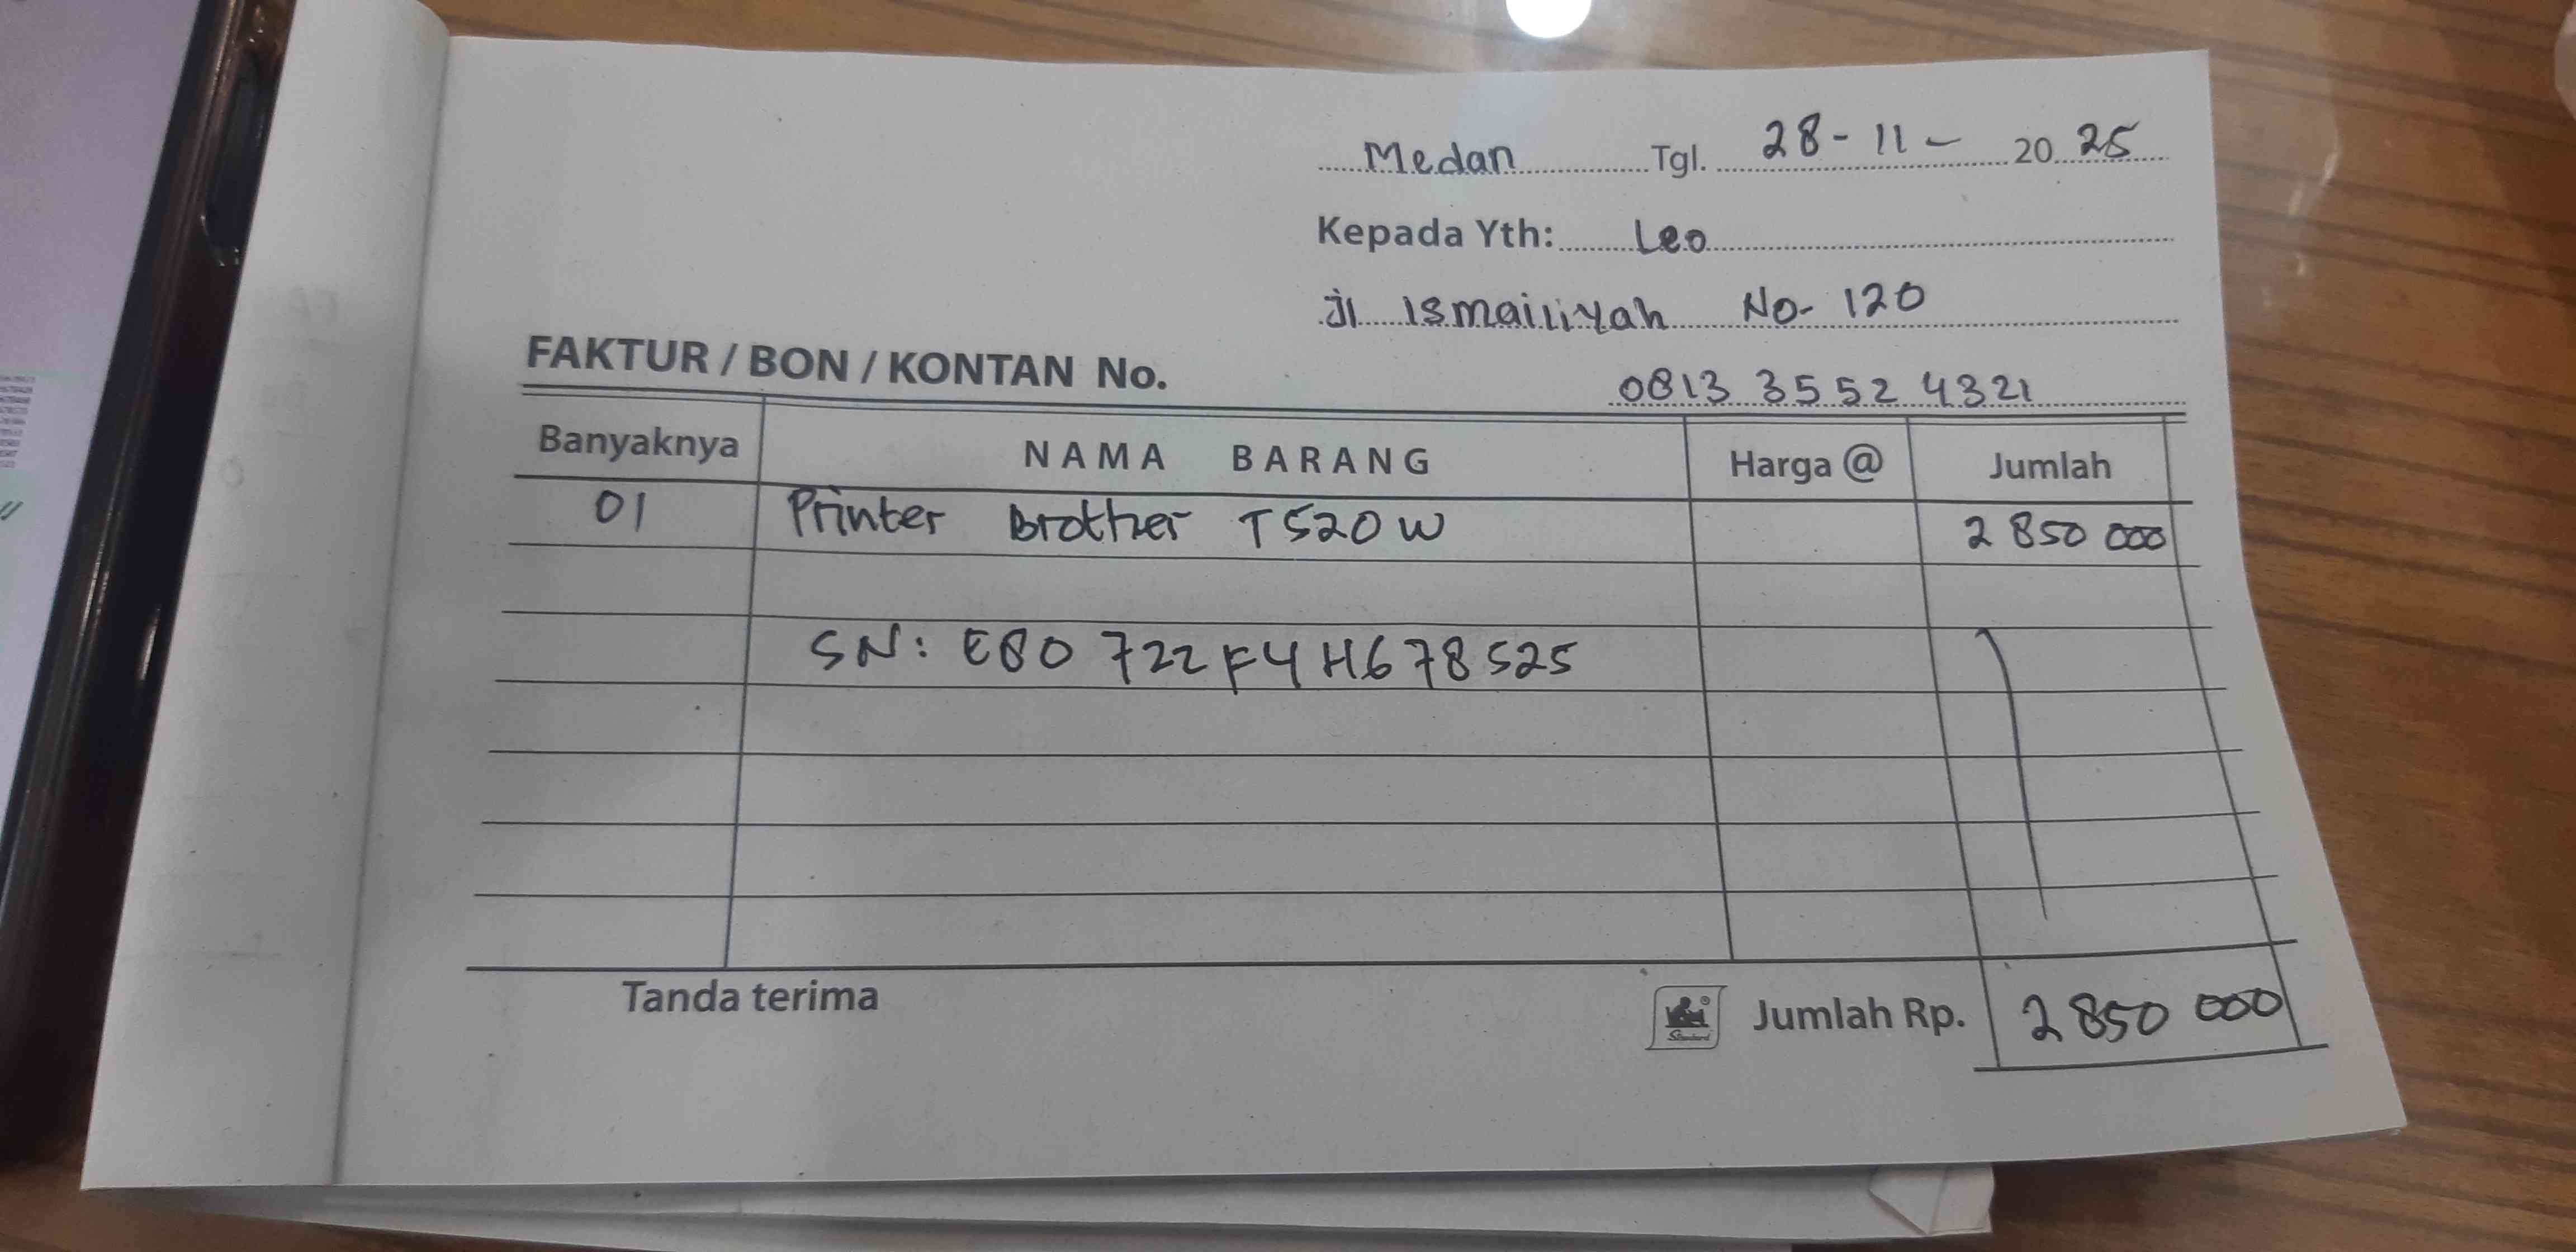 Medan Tgl. 28 - 11 - 20 25
Kepada Yth: Leo
Jl Ismailiyah No- 120
FAKTUR / BON / KONTAN No.
0813 3552 4321
Banyaknya NAMA BARANG Harga @ Jumlah
01 Printer Brother T520W 2 850 000
SN: E80 722F4H678525
Tanda terima Standard Jumlah Rp. 2 850 000